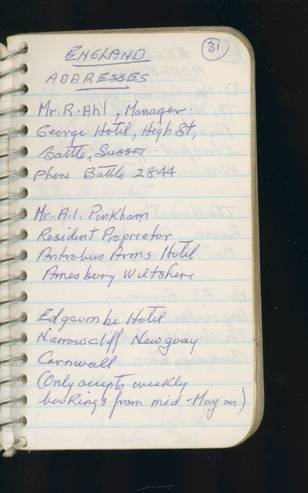 31
ENGLAND
ADDRESSES
Mr. R. Ahl, Manager.
George Hotel, High St,
Battle, Sussex
Phone Battle 2844
Mr. A. I. Pinkham
Resident Proprietor
Antrobus Arms Hotel
Amesbury Wiltshire
Edgcumbe Hotel
Narrowcliff Newquay
Cornwall
(Only accepts weekly
bookings from mid-May on)